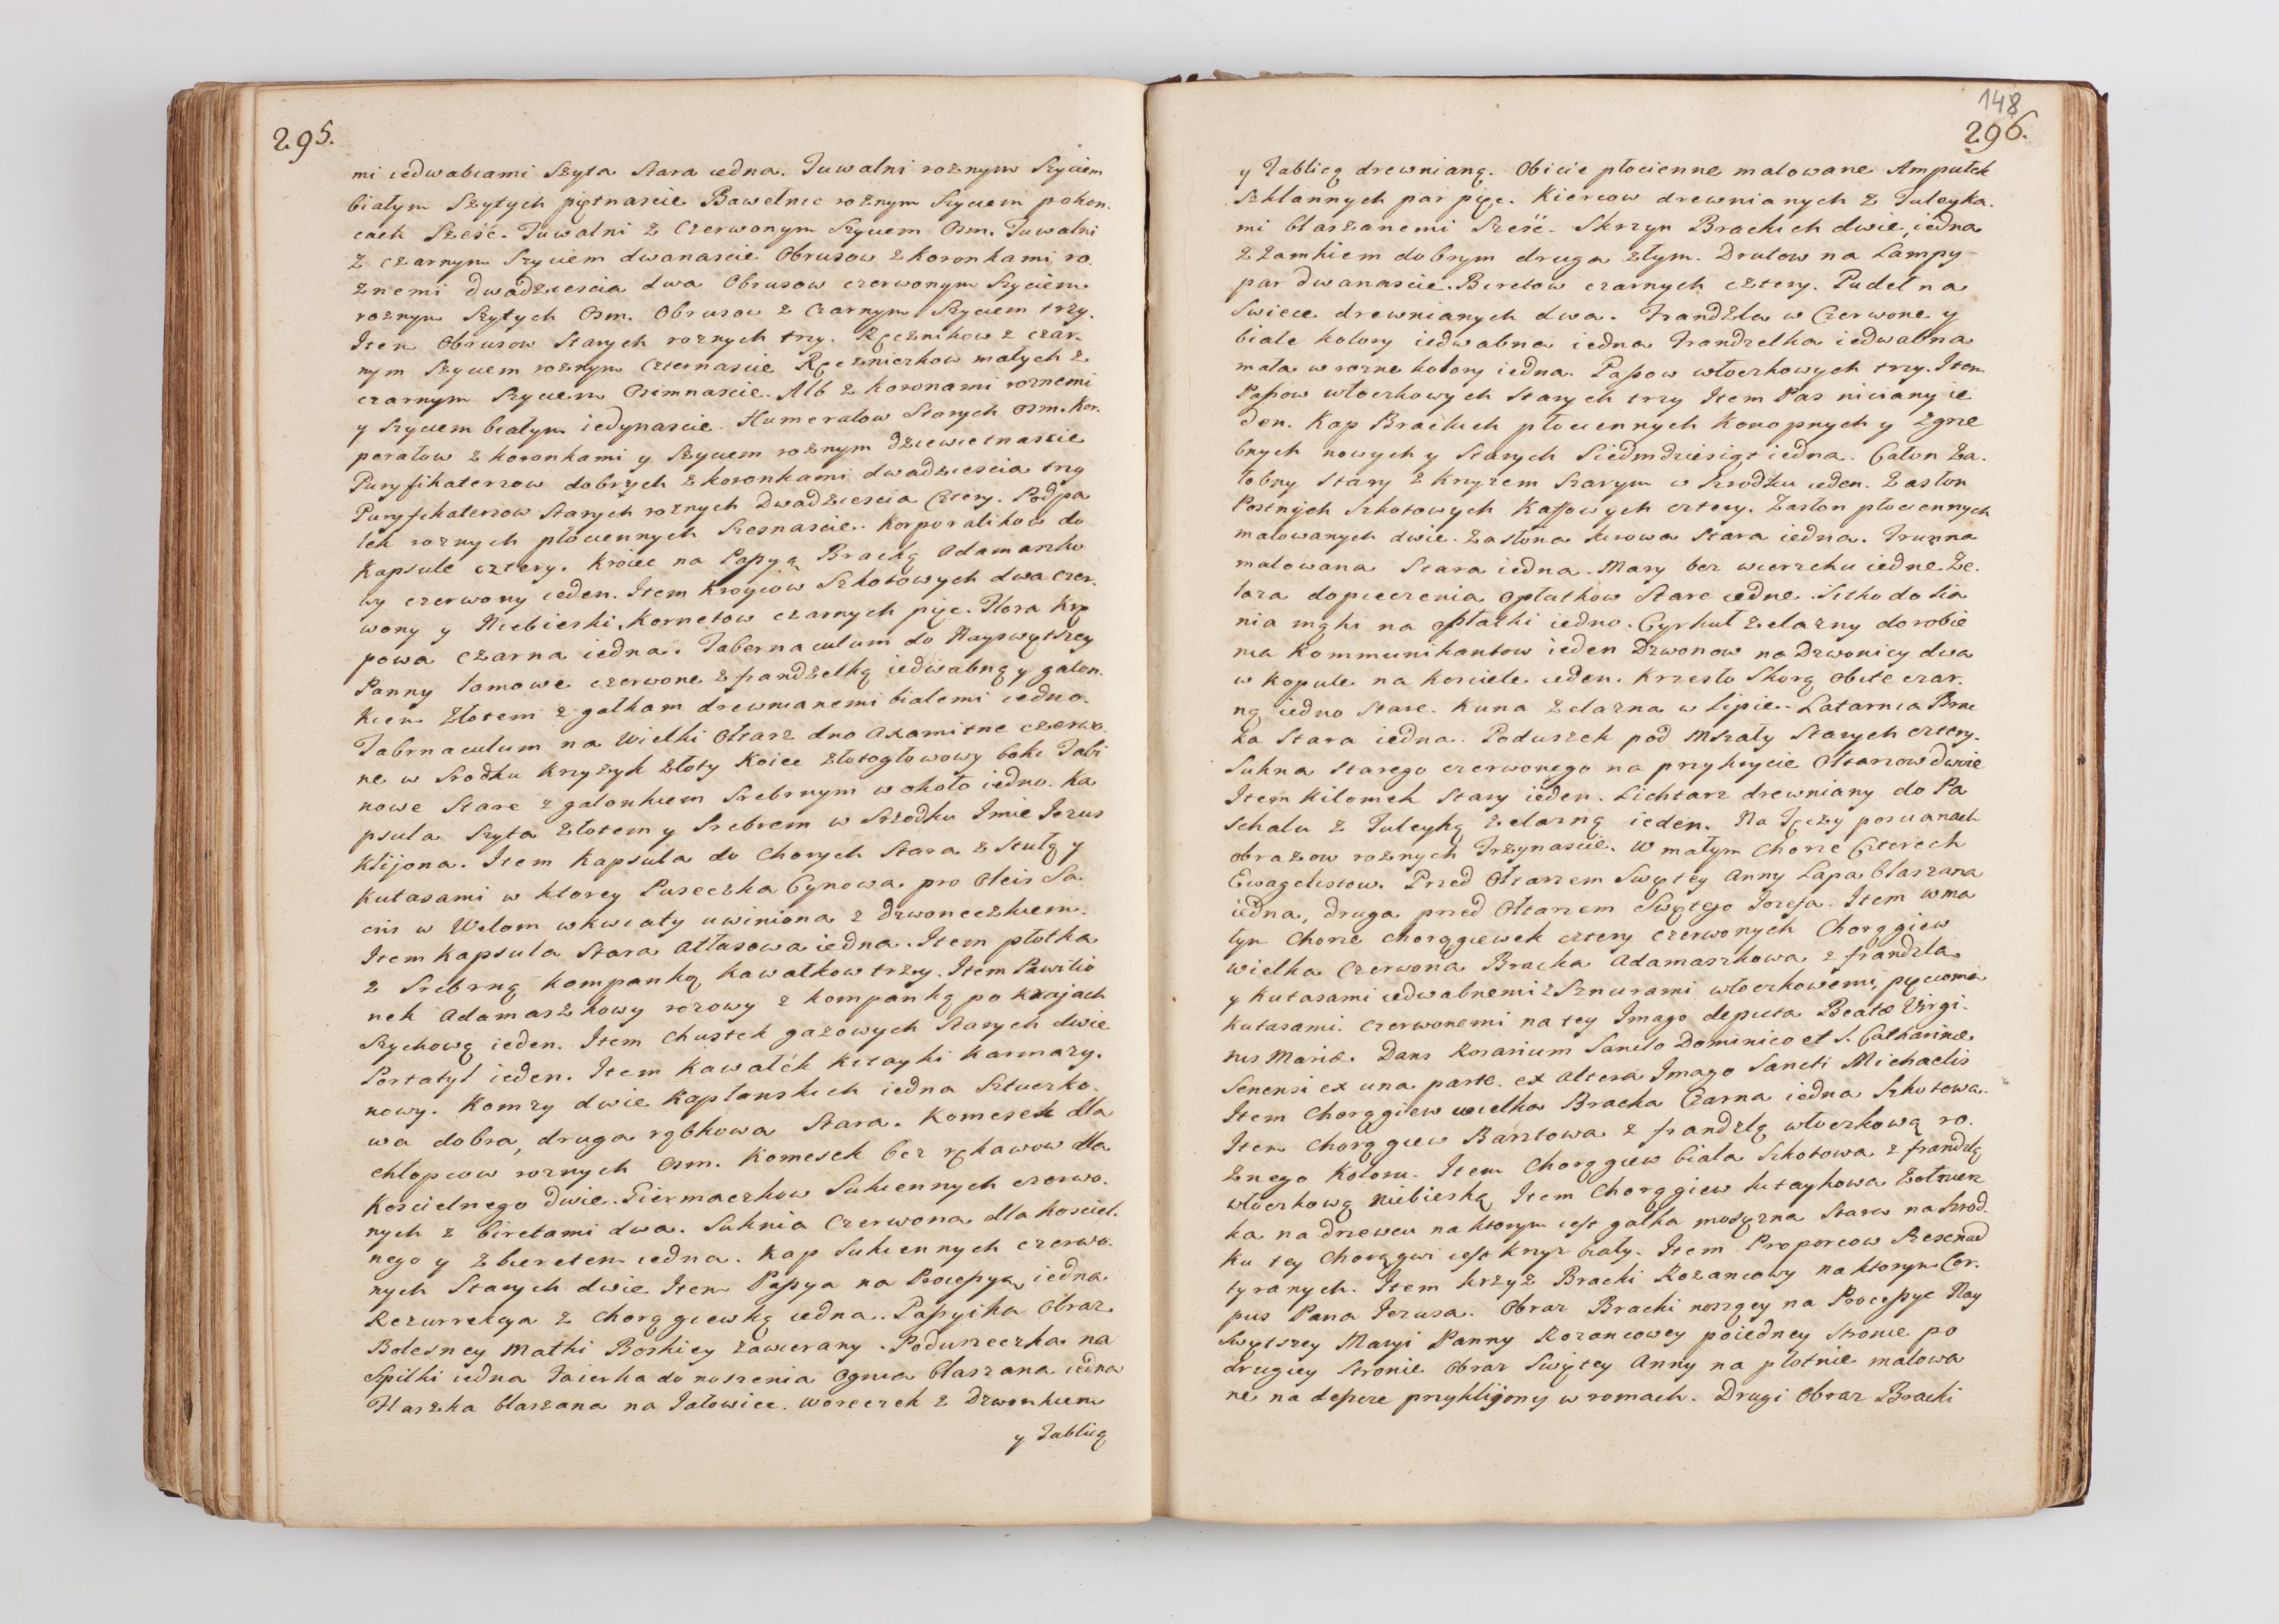 295.
mi iedwabiami Szyta Stara iedna. Tuwalni roznym Szyciem
białym Szytych piętnascie Bawełnic roznym Szyciem po kon.
cach Sześć. Tuwalni z Czerwonym Szyciem Osm. Tuwalni
z czarnym Szyciem dwanascie Obrusow z koronkami ro.
znemi dwadziescia dwa Obrusow czerwonym Szyciem
roznym Szytych Osm. Obrusow z Czarnym Szyciem trzy.
Item Obrusow Starych roznych trzy. Ręcznikow z czar.
nym Szyciem roznym czternascie Ręczniczkow małych z
czarnym Szyciem Osimnascie. Alb z koronami roznemi
y Szyciem białym iedynascie. Humerałow Starych osm. Kor.
porałow z koronkami y Szyciem roznym dziewietnascie
Puryfikaterzow dobrych z koronkami dwadziescia trzy
Puryfikaterzow Starych roznych Dwadziescia Cztery. Podpa
lek roznych płociennych Szesnascie. Korporalikow do
Kapsule cztery. Kroiec na Papyą Bracką Adamaszko
wy czerwony ieden. Item Kroycow Szkotowych dwa czer.
wony y Niebieski, Kornetow czarnych pięc. Flora Kre
powa czarna iedna. Tabernaculum do Nayswiętszey
Panny lamowe czerwone z frandzelką iedwabną y galon.
kiem Złotem z gałkam drewnianemi białemi iedno.
Tabrnaculum na Wielki Ołtarz dno axamitne czerwo.
ne w Srodku krzyzyk złoty Koice złotogłowowy boki Tabi
nowe Stare z galonkiem Srebrnym w około iedno. Ka
psula Szyta złotem y Srebrem w Srzodku Imie Jezus
Klijona. Item Kapsula do Chorych Stara z Stułą y
Kutasami w ktorey Puseczka Cynowa pro Oleis Sa
cris w Welom w kwiaty uwiniona z Dzwoneczkiem.
Item Kapsula Stara Atłasowa iedna. Item płotka
z Srebrną kompanką kawałkow trzy. Item Pawilio
nek Adamaszkowy rozowy z kompanką po krajach
Szychową ieden. Item Chustek gazowych Starych dwie
Portatyl ieden. Item Kawałek Kitayki Karmazy.
nowy. Komzy dwie Kapłanskich iedna Sztuczko.
wa dobra, druga rąbkowa Stara. Komezek dla
chłopcow roznych Osm. Komesek bez rękawow dla
Koscielnego dwie. Giermaczkow Sukiennych czerwo.
nych z biretami dwa. Suknia Czerwona dla Kosciel.
nego y z biretem iedna. Kap Sukiennych czerwo.
nych Starych dwie Item Papya na Procepyą iedna
Rezurrekcya z Chorągiewką iedna. Papyika Obraz
Bolesney Matki Boskiey zawierany. Poduszeczka na
Spilki iedna Faierka do noszenia Ognia blaszana iedna
Flaszka blaszana na Jałowiec. woreczek z Dzwonkiem
y Tablicą
148
296.
y Tablicą drewnianą. Obicie płocienne malowane Ampułek
Szklannych par pięc. Kiercow drewnianych z Tuleyka.
mi blaszanemi Sześć. Skrzyn Brackich dwie, iedna
z zamkiem dobrym druga złym. Drutow na Lampy
par dwanascie. Biretow czarnych cztery. Pudel na
Swiece drewnianych dwa. Frandzla w Czerwone y
białe kolory iedwabna iedna Frandzelka iedwabna
mała w rozne kolory iedna. Pasow włoczkowych trzy. Item
Pasow włoczkowych Starych trzy Item Pas niciany ie
den. Kap Brackich płociennych Konopnych y Zgrze
bnych nowych y Starych Siedmdziesiąt iedna. Całon Ża.
łobny Stary z Krzyzem Szarym w Szrodku ieden. Zasłon
Postnych Szkotowych Kaffowych cztery. Zasłon płociennych
malowanych dwie. Zasłona surowa Stara iedna. Trunna
malowana Stara iedna. Mary bez wierzchu iedne. Że.
laza dopieczenia opłatkow Stare iedne. Sitko do Sia
nia mąki na opłatki iedno. Cyrkuł zelazny do robie
nia Kommunikantow ieden Dzwonow na Dzwonicy dwa
w kopule na kosciele ieden. Krzesło Skorą obite czar.
ną iedno Stare. Kuna zelazna w Lipie. Latarnia Brac
ka Stara iedna. Poduszek pod Mszały Starych cztery.
Sukna Starego czerwonego na przykrycie Ołtarzow dwoie
Item Kilomek Stary ieden. Lichtarz drewniany do Pa
schału z Tuleyką zelazną ieden. Na Tęczy po scianach
obrazow roznych Trzynascie. W małym Chorze Czterech
Ewagelistow. Przed Ołtarzem Swiętey Anny Lapa blaszana
iedna, druga przed Ołtarzem Swiętego Jozefa. Item w ma
łym Chorze chorągiewek cztery czerwonych Chorągiew
wielka Czerwona Bracka Adamaszkowa z frandzla
y kutasami iedwabnemi z Sznurami włoczkowemi, pięcioma
kutasami czerwonemi na tey Imago depicta Beatæ Virgi.
nis Mariæ. Dans Rosarium Sancto Dominico et S. Catharinæ
Senensi ex una parte. ex altera Imago Sancti Michaelis
Item Chorągiew wielka Bracka Czarna iedna Szkotowa.
Item Chorągiew Barszowa z frandzlą włoczkową ro.
znego koloru. Item Chorągiew biała Szkotowa z frandzlą
włoczkową Niebieską Item Chorągiew kitaykowa Żołnier
ka na drzewcu na ktorym iest gałka mosiężna Stara na Szrod.
ku tey Chorągwi iest krzyz biały. Item Proporcow Szesnad
tyranych. Item krzyż Bracki Rozancowy na ktorym Cor.
pus Pana Jezusa. Obraz Bracki noszący na Procepye Nay
Swiętszey Maryi Panny Rozancowey poiedney Stronie po
drugiey Stronie Obraz Swiętey Anny na płotnie malowa
ne na depcze przykliiony w romach. Drugi Obraz Bracki